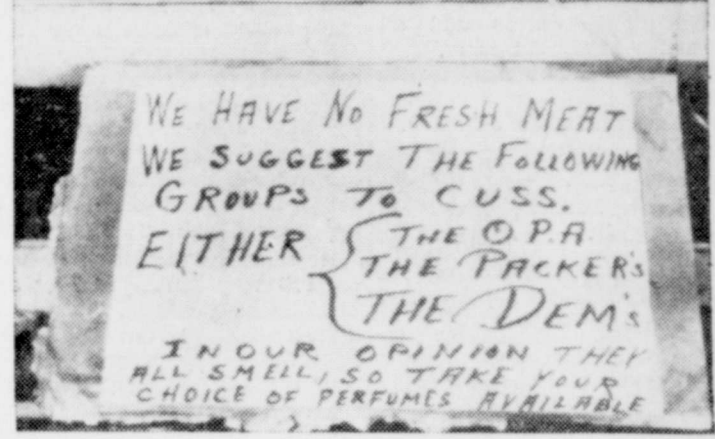 WE HAVE NO FRESH MEAT
WE SUGGEST THE FOLLOWING
GROUPS TO CUSS.
EITHER { THE O.P.A.
THE PACKER'S
THE DEM'S
IN OUR OPINION THEY
ALL SMELL, SO TAKE YOUR
CHOICE OF PERFUMES AVAILABLE